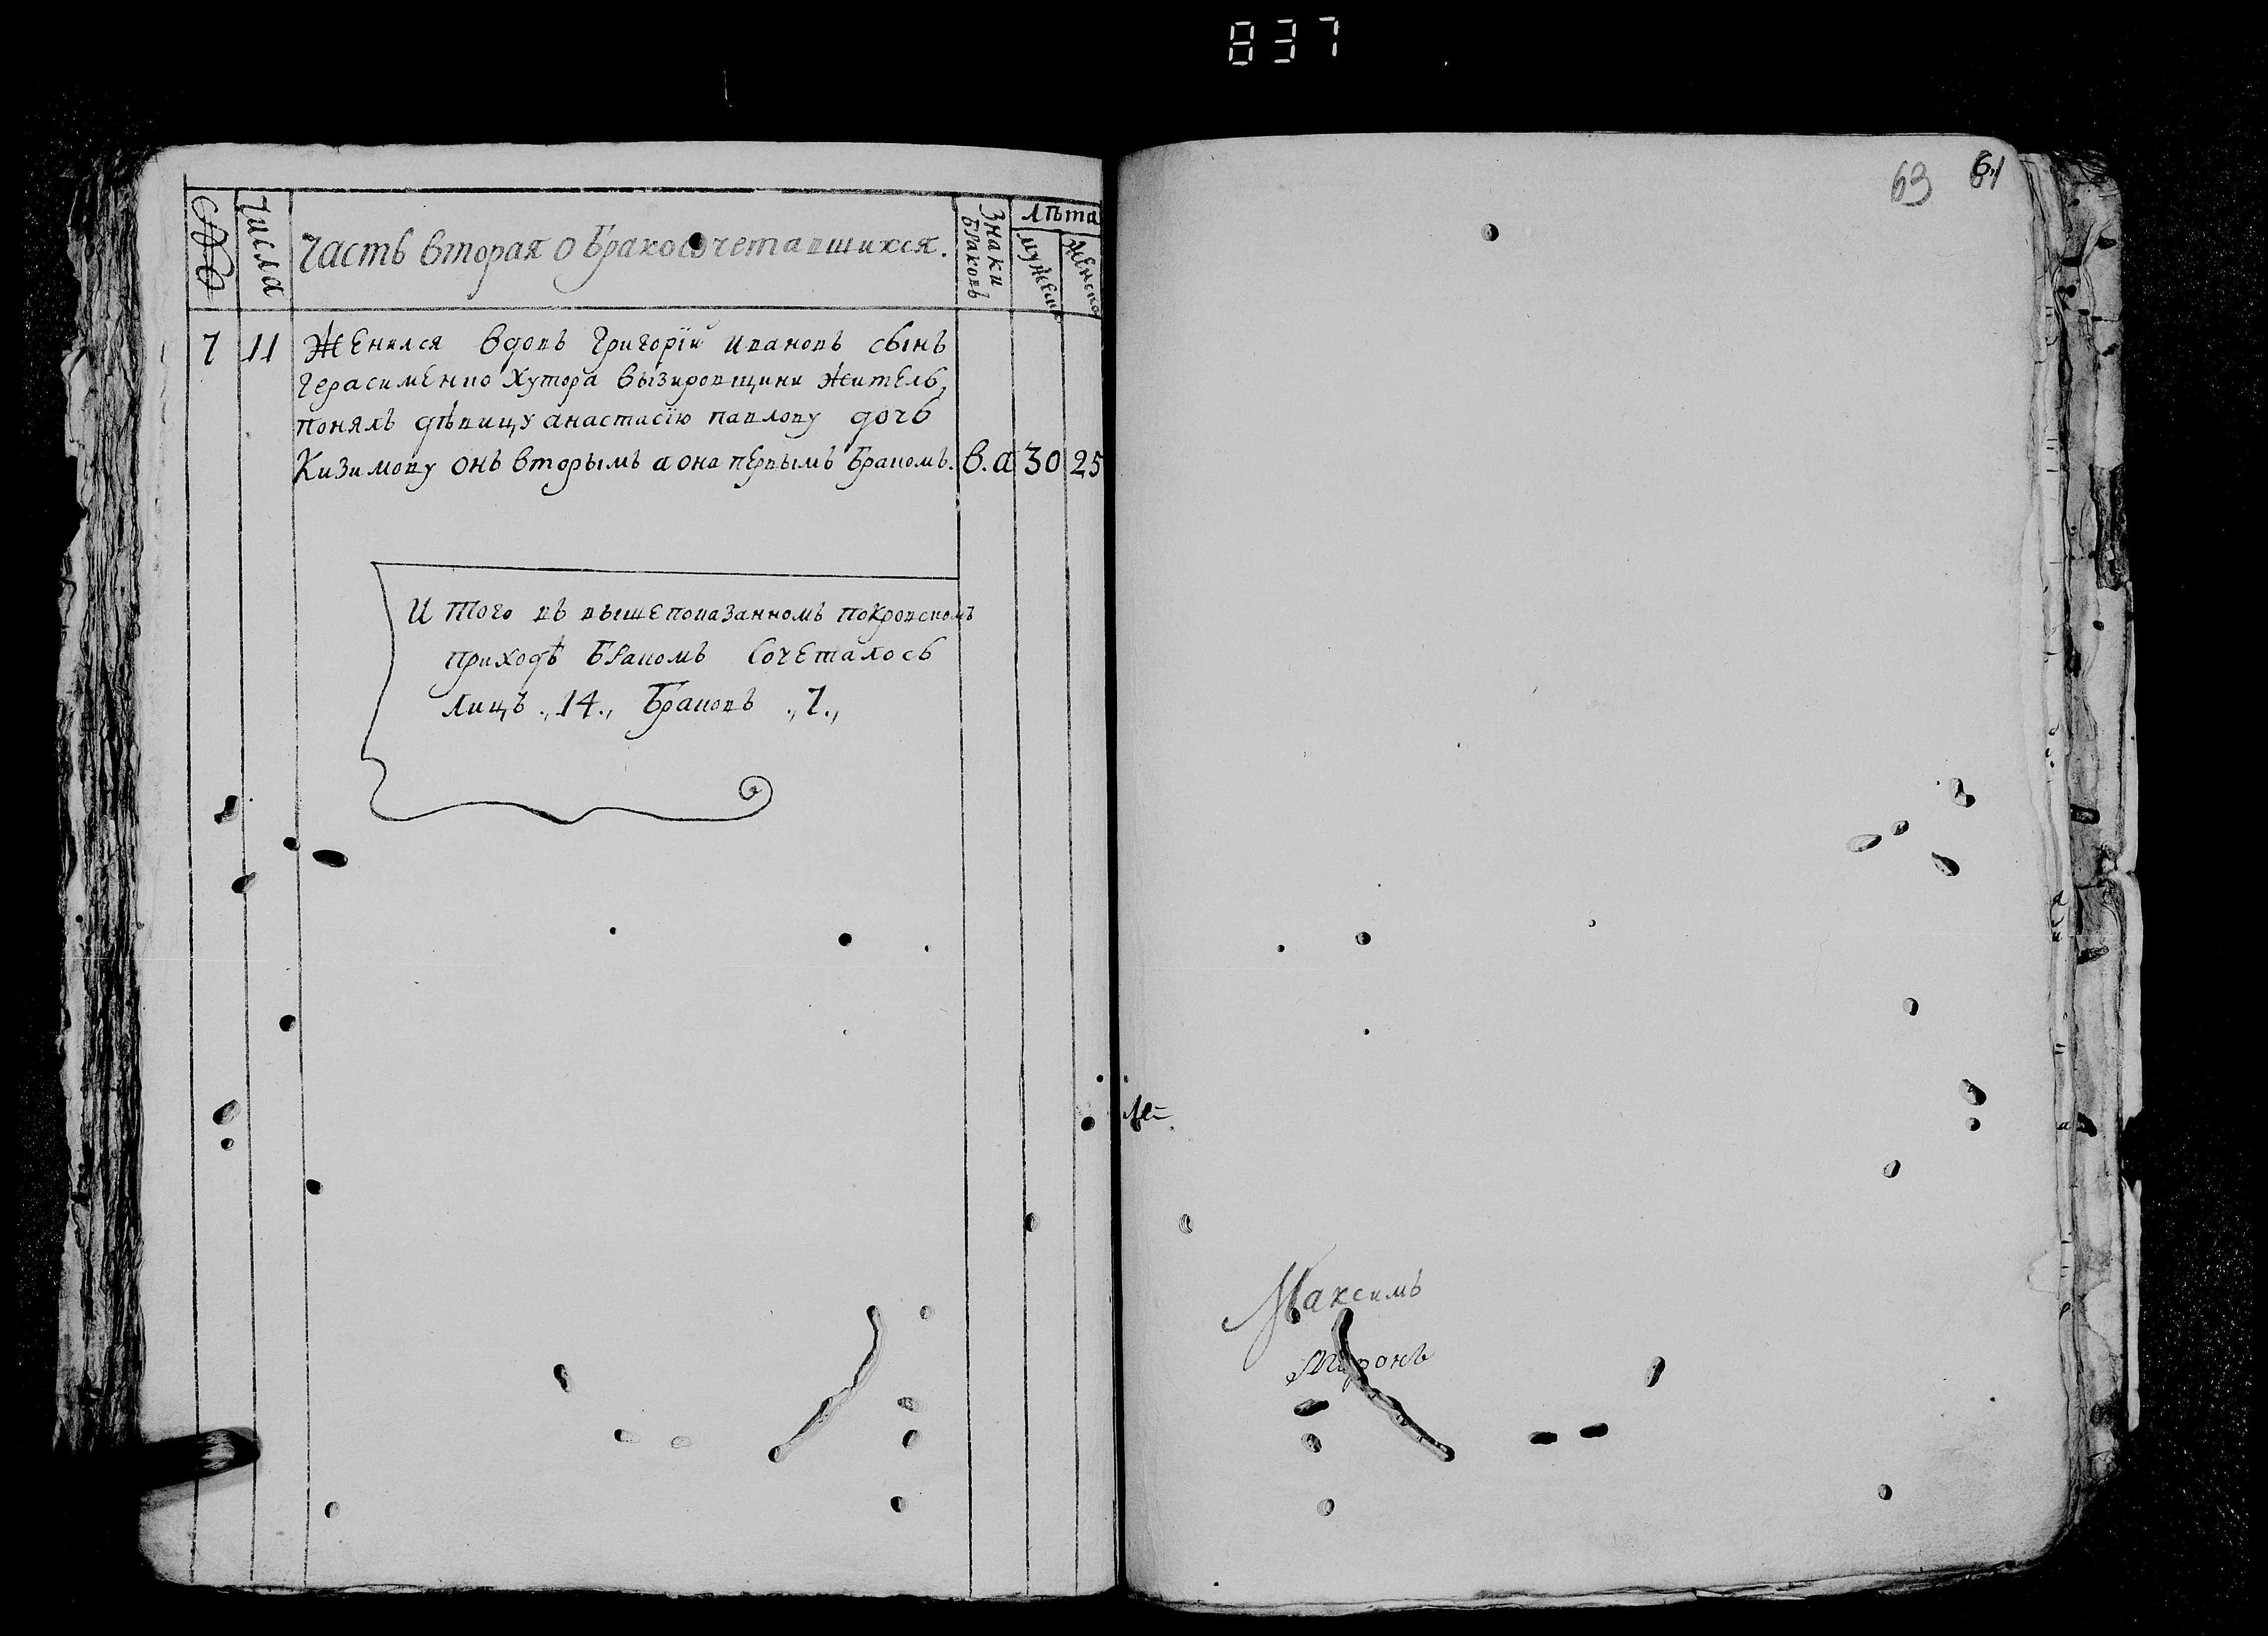 837
Счетъ
Числа
Часть вторая о бракосочетавшихся.
Знаки браковъ
Лѣта
мужеск
женско
7 11 Женился вдовъ Григорій Ивановъ сынъ
Герасименко хутора Вызировщини житель,
понялъ дѣвицу Анастасію Павлову дочь
Кизимову онъ вторымъ а она первымъ бракомъ. в. а 30 25
И того въ вышепоказанномъ покровскомъ
приходѣ бракомъ сочеталось
лицъ „14„ браковъ „7„
63 61
Максимъ